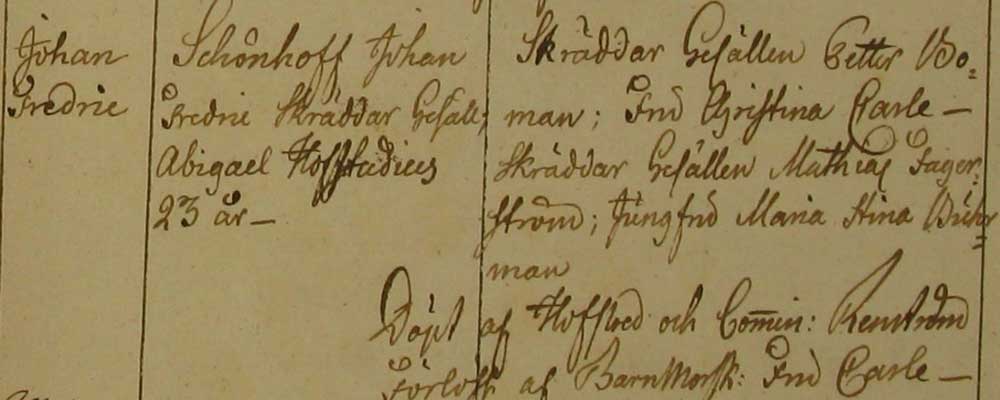 Johan
Fredric
Schönhoff Johan
Fredric Skräddar Gesäll;
Abigael Hoffstedius
23 år —
Skräddar Gesällen Petter Bo=
man; Fru Christina Carle —
Skräddar Gesällen Mathias Fager=
ström; Jungfru Maria Stina
man
Döpt af Hofpred och Com̅in: Renström
Förlost af BarnMorsk: Fru Carle —